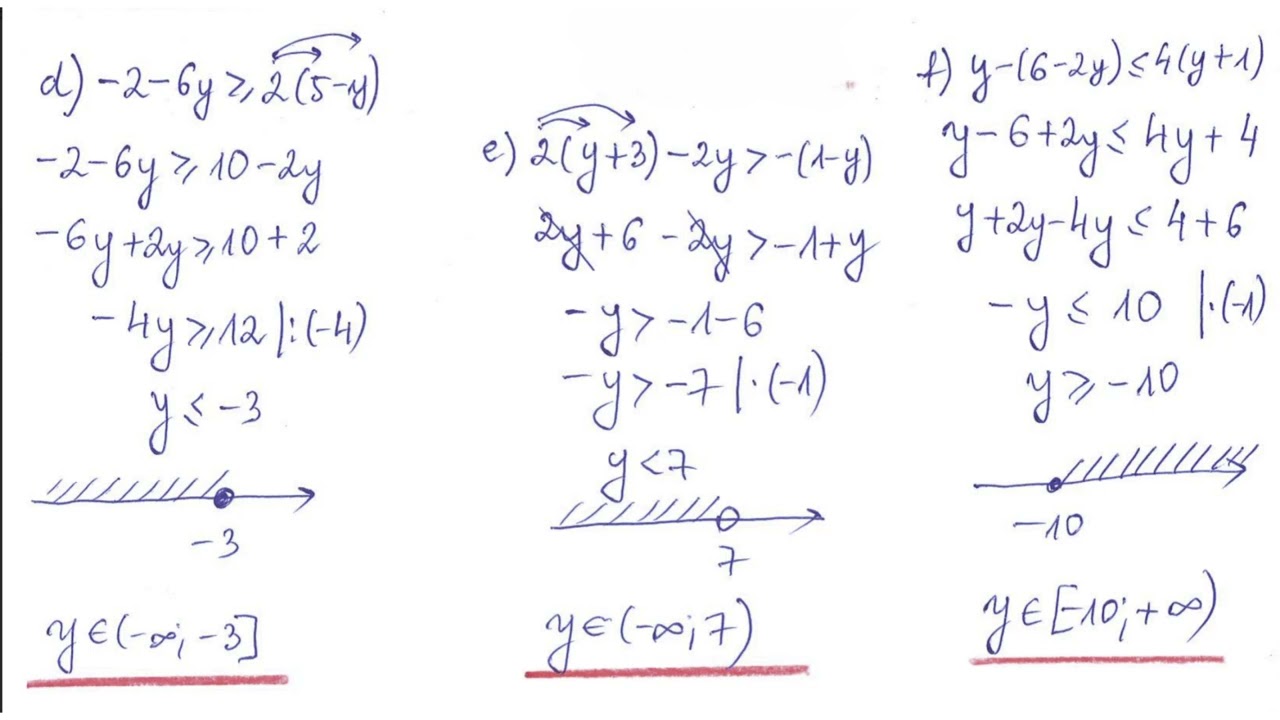 d) -2-6y ⩾ 2(5-y)
-2-6y ⩾ 10-2y
-6y+2y ⩾ 10+2
-4y ⩾ 12 |:(-4)
y ⩽ -3
-3
y ∈ (-∞; -3]
e) 2(y+3)-2y > -(1-y)
2y+6-2y > -1+y
-y > -1-6
-y > -7 |·(-1)
y < 7
7
y ∈ (-∞; 7)
f) y-(6-2y) ⩽ 4(y+1)
y-6+2y ⩽ 4y+4
y+2y-4y ⩽ 4+6
-y ⩽ 10 |·(-1)
y ⩾ -10
-10
y ∈ [-10; +∞)